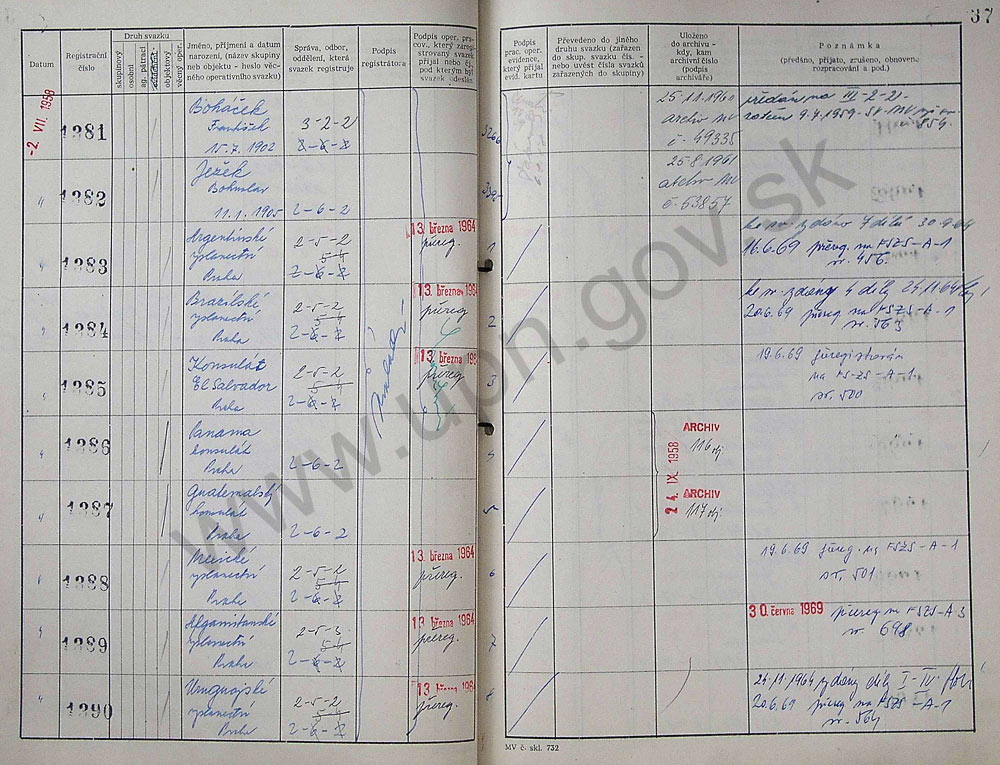 37
Datum
Registrační
číslo
Druh svazku
skupinový
osobní
ag. pátrací
objektový
věcný oper.
Jméno, příjmení a datum
narození, (název skupiny
neb objektu - heslo věc-
ného operativního svazku)
Správa, odbor,
oddělení, která
svazek registruje
Podpis
registrátora
Podpis oper. pra-
cov., který zareg-
istrovaný svazek
přijal nebo čj.,
pod kterým byl
svazek odeslán
Podpis
prac. oper.
evidence,
který přijal
evid. kartu
Převedeno do jiného
druhu svazku (zařazen
do skup. svazku čís. -
nebo uvést čísla svazků
zařazených do skupiny)
Uloženo
do archivu -
kdy, kam
archivní číslo
(podpis
archiváře)
Poznámka
(předšno, přijato, zrušeno, obnoveno
rozpracování a pod.)
-2. VII. 1958
1381
Boháček
František
15.7. 1902
3-2-2
25.11.1960
archiv MV
č. 49335
předán na III-2-21
1382
Ježek
Bohuslav
11.1. 1905
2-6-2
25.8.1961
archiv MV
č. 63857
1383
Argentinské
vyslanectví
Praha
2-5-2
5-4
2-6-2
13. března 1964
přereg.
1
16.6.69 přereg. na FSZS-A-1
sv. 456.
1384
Brazilské
vyslanectví
Praha
2-5-2
5-4
2-6-2
13. březnа 1
přereg
2
4 díly 24.11.64
20.6.69 přereg na FSZS-A-1
sv. 563
1385
Konsulát
El Salvador
Praha
2-5-2
5-4
2-6-2
13. března 196
přereg
3
19.6.69
na FSZS-A-1.
sv. 500
1386
Panama
konsulát
Praha
2-6-2
4
24. IX. 1958
ARCHIV
116 obj
1387
Guatemalský
konsulát
Praha
2-6-2
5
ARCHIV
117 obj
1388
Mexické
vyslanectví
Praha
2-5-2
5-4
2-6-2
13. března 1964
přereg.
6
19.6.69 přereg. na FSZS-A-1
sv. 501
1389
Afganistanské
vyslanectví
Praha
2-5-3
5-4
2-6-2
13. března 1964
přereg.
7
30. června 1969 přereg na FSZS-A-3
sv. 698
1390
Uruguajské
vyslanectví
Praha
2-5-2
5-4
2-6-2
13. března 196
přereg.
8
24.11.1964 vydány díly I-IV
20.6.69 přereg na FSZS-A-1
sv. 564
MV č. skl. 732
www.upn.gov.sk